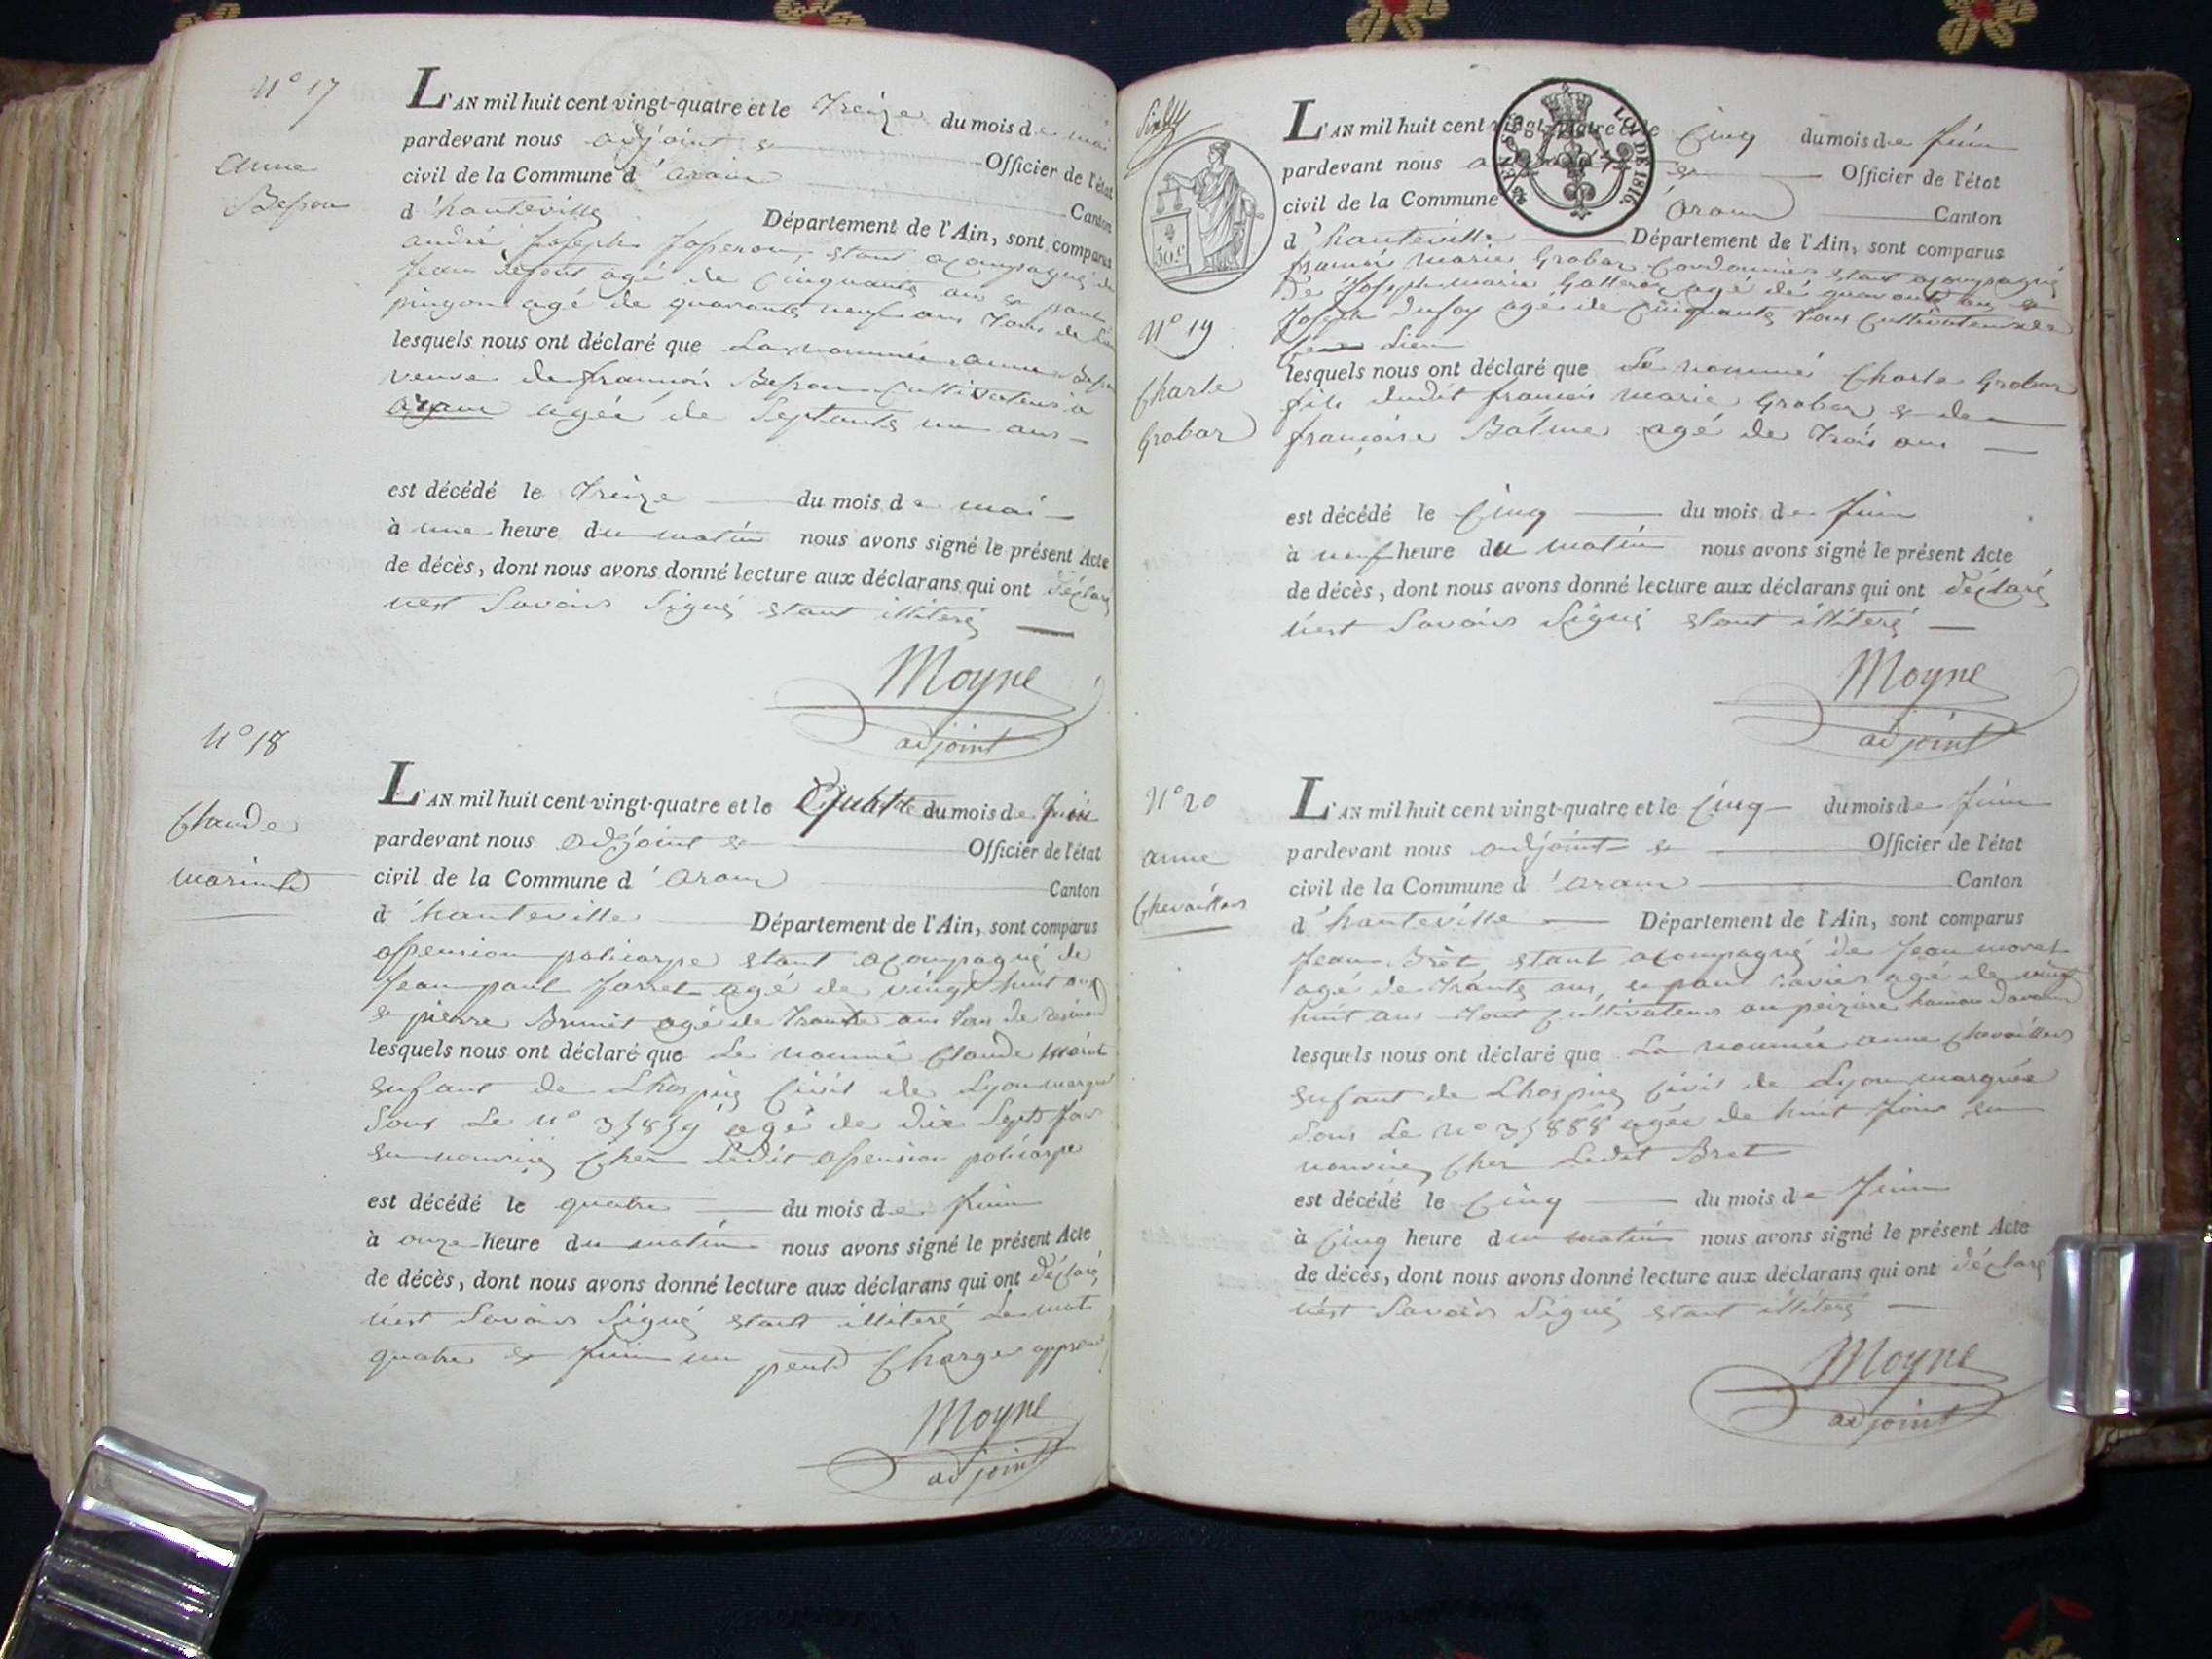 N° 17
anne
Besson
L'AN mil huit cent vingt-quatre et le Treize du mois de mai
pardevant nous adjoint et Officier de l'état
civil de la Commune d'aranc Canton
d'hauteville Département de l'Ain, sont comparus
andré joseph stant acompagné de
jean agé de Cinquante ans et paul
pinçon agé de quarante neuf ans tous de
lesquels nous ont déclaré que La nommée anne Besson
veuve de françois Besson Cultivateur a
aranc agée de Septante un ans
est décédé le Treize du mois de mai
à une heure du matin nous avons signé le présent Acte
de décès, dont nous avons donné lecture aux déclarans qui ont déclaré
n'est Savoir Signé stant illiteré
Moyne
adjoint
N° 18
Claude
L'AN mil huit cent vingt-quatre et le Quatre du mois de Juin
pardevant nous adjoint et Officier de l'état
civil de la Commune d'aranc Canton
d'hauteville Département de l'Ain, sont comparus
assension policarpe stant acompagné de
jean paul jarret agé de vingt huit ans
et pierre Brunet agé de trante ans tous de
lesquels nous ont déclaré que Le nommé Claude
enfant de Lhospice Civil de Lyon marqué
Sous Le N° 35859 agé de dix Sept jour
en nourrice Cher Ledit assension policarpe
est décédé le quatre du mois de juin
à onze heure du matin nous avons signé le présent Acte
de décès, dont nous avons donné lecture aux déclarans qui ont déclaré
n'est Savoir Signé stant illiteré Le mot
quatre et juin un peut Charge approuvé
Moyne
adjoint
50.C
LOI DE 1816.
N° 19
Charle
Grobas
L'AN mil huit cent vingt-quatre et le Cinq du mois de juin
pardevant nous adjoint et Officier de l'état
civil de la Commune d'aranc Canton
d'hauteville Département de l'Ain, sont comparus
françois marie Grobas Cordonnier stant acompagné
de Joseph marie agé de quarante ans et
Joseph Dufoy agé de Cinquante tous Cultivateur de
Lieu
lesquels nous ont déclaré que Le nommé Charle Grobas
fils dudit françois marie Grobas et de
françoise Balme agé de trois ans
est décédé le Cinq du mois de juin
à neuf heure du matin nous avons signé le présent Acte
de décès, dont nous avons donné lecture aux déclarans qui ont déclaré
n'est Savoir Signé stant illiteré
Moyne
adjoint
N° 20
anne
Chevaillers
L'AN mil huit cent vingt-quatre et le Cinq du mois de juin
pardevant nous adjoint et Officier de l'état
civil de la Commune d'aranc Canton
d'hauteville Département de l'Ain, sont comparus
jean Brèt stant acompagné de jean moret
agé de trante ans, et paul Savier agé de vingt
huit ans tout Cultivateur au hamau daranc
lesquels nous ont déclaré que La nommée anne Chevaillers
enfant de Lhospice Civil de Lyon marquée
Sous Le N° 35888 agée de huit jour en
nourrice Cher Ledit Bret
est décédé le Cinq du mois de juin
à Cinq heure du matin nous avons signé le présent Acte
de décès, dont nous avons donné lecture aux déclarans qui ont déclaré
n'est Savoir Signé stant illiteré
Moyne
adjoint